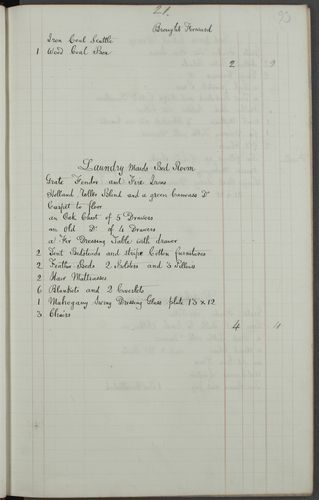 21.
93
Brought Forward
Iron Coal Scuttle
1 Wood Coal Box
2 9
Laundry Maids Bed Room
Grate Fender and Fire Irons
Holland Roller Blind and a green Canvass Do
Carpet to floor
an Oak Chest of 5 Drawers
an old Do of 4 Drawers
a Fir Dressing Table with drawer
2 Tent Bedsteads and stripe Cotton furnitures
2 Feather Beds 2 Bolsters and 3 Pillows
2 Hair Mattrasses
6 Blankets and 2 Coverlets
1 Mahogany Swing Dressing Glass plate 15 x 12
3 Chairs
4 4